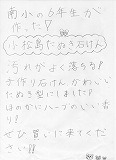 南小の6年生が
作った!!
小松島たぬき石けん
汚れがよく落ちる!!
手作り石けん かわいい
たぬき型にしました!!
ほのかにハーブのいい香
り!
ぜひ買いに来てくださ
い!!